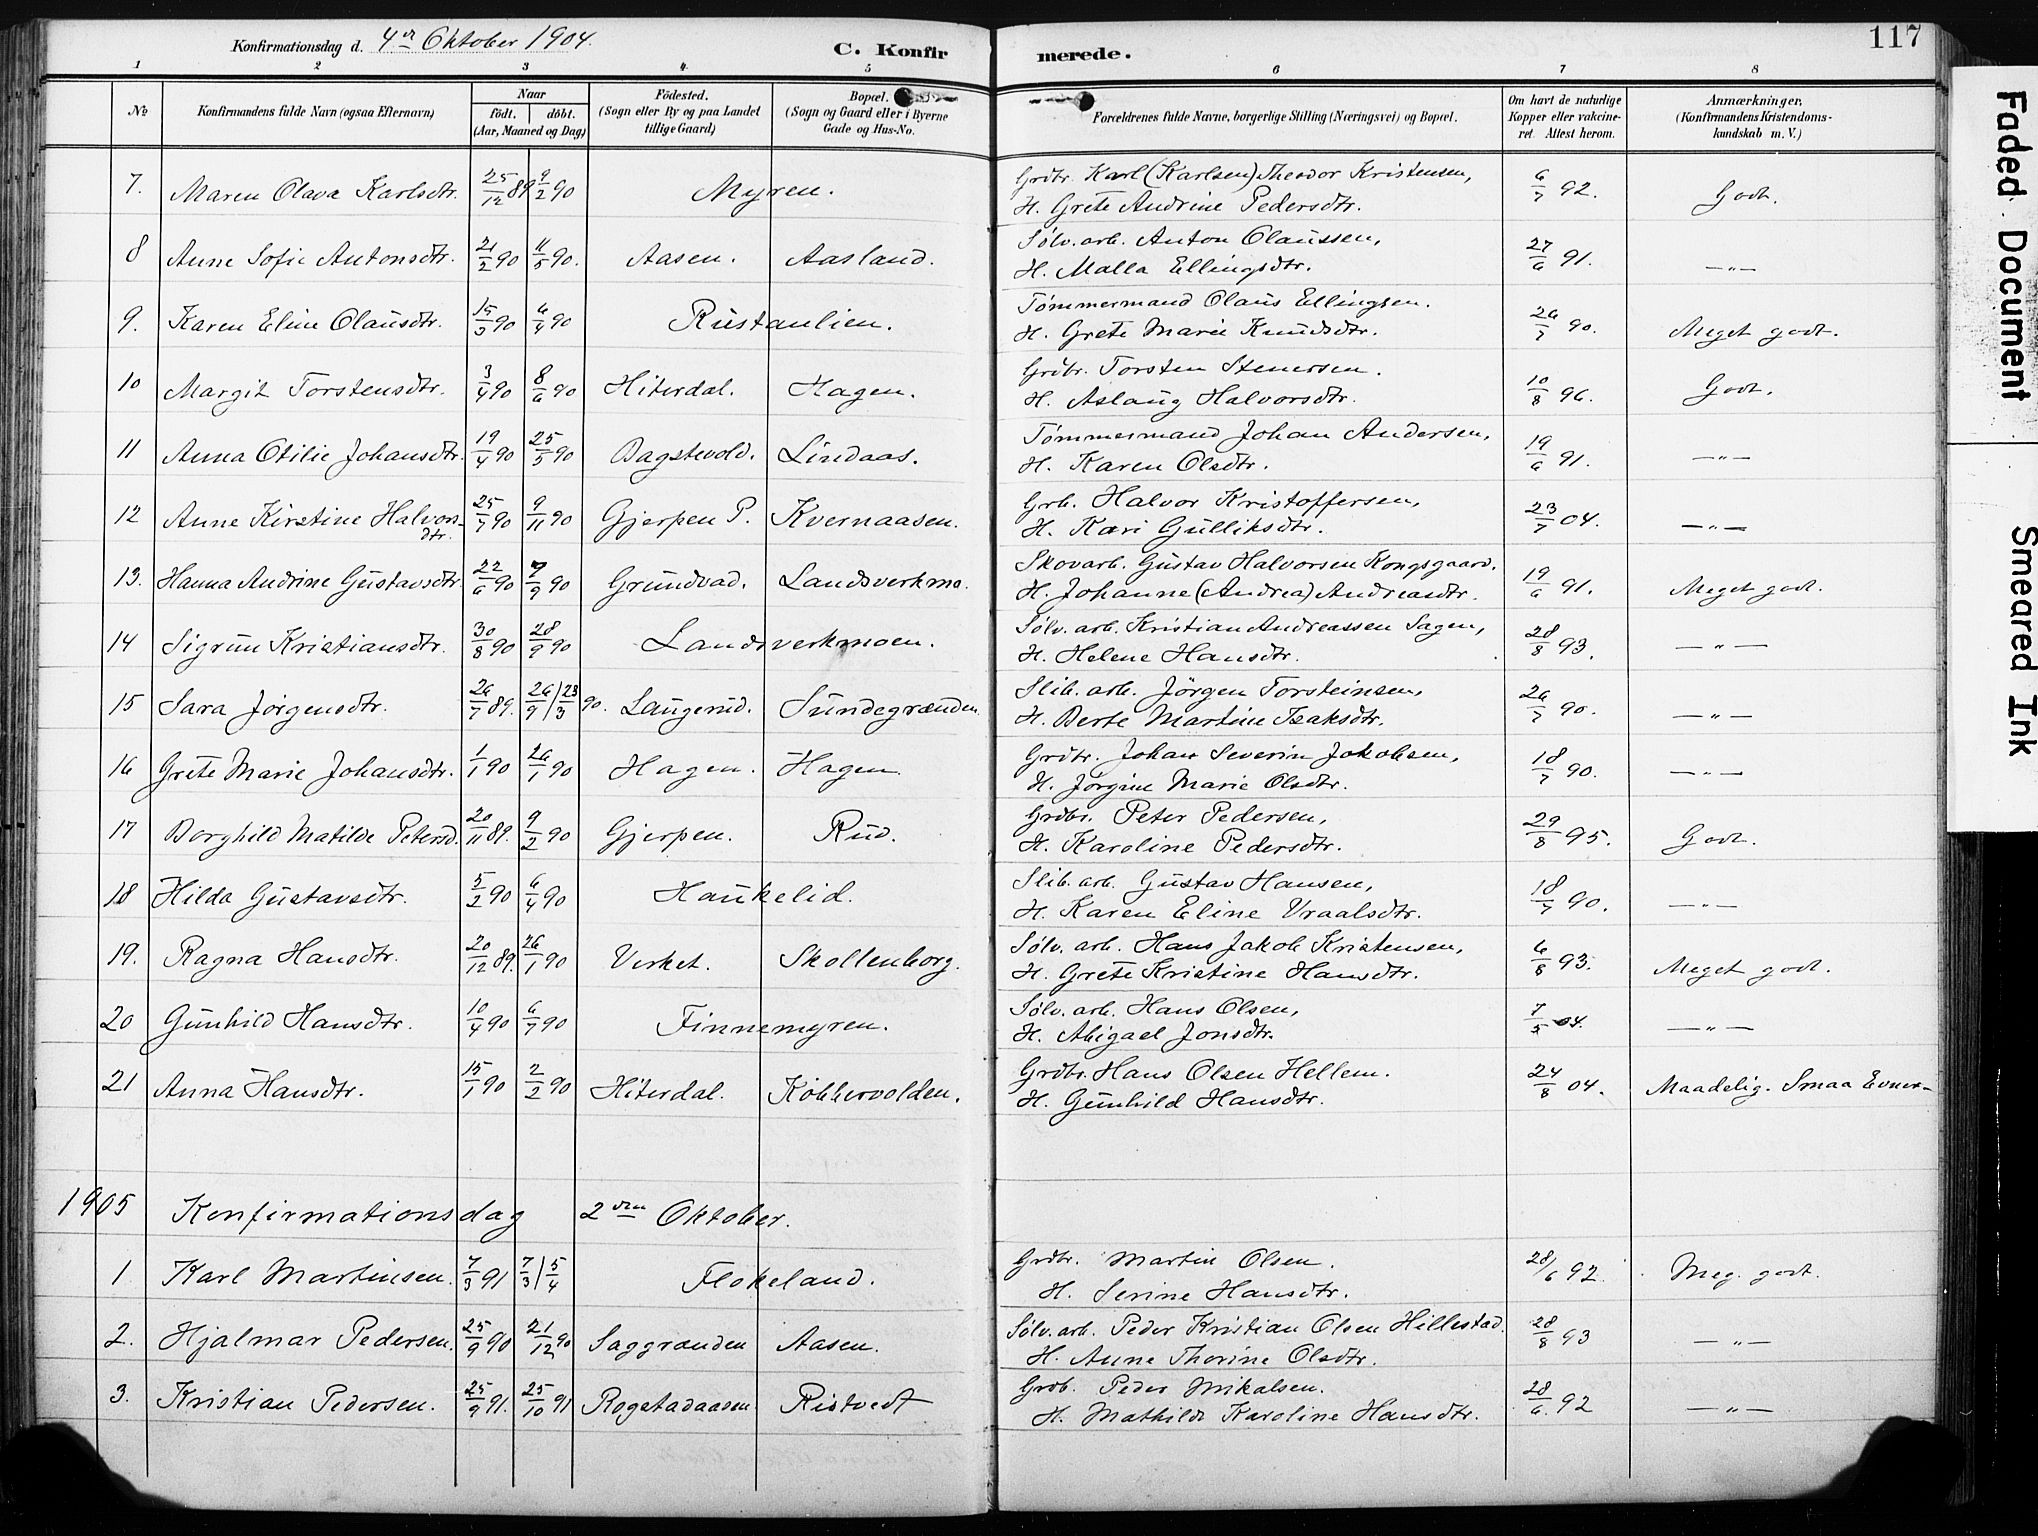 Konfirmationsdag d. 4de Oktober 1904. C. Konfir merede. 117
1 2 3 4 5 6 7 8
No Konfirmandens fulde Navn (ogsaa Efternavn) Naar födt. döbt. (Aar, Maaned og Dag) Födested. (Sogn eller By og paa Landet tillige Gaard) Bopæl. (Sogn og Gaard eller i Byerne Gade og Hus-No. Forældrenes fulde Navne, borgerlige Stilling (Næringsvei) og Bopæl. Om havt de naturlige Kopper eller vakcineret. Attest herom. Anmærkninger, (Konfirmandens Kristendomskundskab m. V.)
7. Maren Olava Karlsdtr. 25/12 89 9/2 90 Myren. Grdbr. Karl (Karlsen) Theodor Kristensen, 6/7 92. Godt.
H. Grete Andrine Pedersdtr.
8 Anne Sofie Antonsdtr. 21/2 90 11/5 90. Aasen. Aasland. Sølv. arb. Anton Olaussen, 27/6 91. —"—
H. Malla Ellingsdtr.
9. Karen Eline Olausdtr. 15/3 90 6/4 90 Rustanlien. Tømmermand Olaus Ellingsen. 26/7 90. Meget godt.
H. Grete Marie Knudsdtr.
10 Margit Torstensdtr. 3/4 90 8/6 90 Hiterdal. Hagen. Grdbr. Torsten Stenersen. 10/8 96. Godt.
H. Aslaug Halvorsdtr.
11 Anna Otilie Johansdtr. 19/4 90 25/5 90 Bagstevold. Lindaas. Tømmermand Johan Andersen, 19/6 91. —"—
H. Karen Olsdtr.
12 Anne Kirstine Halvors- dtr. 25/7 90 9/11 90 Gjerpen P. Kvernaasen. Grb. Halvor Kristoffersen, 23/7 04. —"—
H. Kari Gulliksdtr.
13. Hanna Andrine Gustavsdtr. 22/6 90 7/9 90 Grundvad. Landsverkmo. Skovarb. Gustav Halvorsen Kongsgaard. 19/6 91. Meget godt.
H. Johanne (Andrea) Andreasdtr.
14 Sigrun Kristiansdtr. 30/8 90 28/9 90 Landsverkmoen. Sølv. arb. Kristian Andreassen Sagen, 28/8 93. —"—
H. Helene Hansdtr.
15 Sara Jørgensdtr. 26/7 89. 26/7 | 23/3 90. Laugerud. Sundegrænden. Slib. arb. Jörgen Torsteinsen, 26/7 90. —"—
H. Berte Martine Isaksdtr.
16 Grete Marie Johansdtr. 1/1 90 26/1 90 Hagen. Hagen. Grdbr. Johan Severin Jakobsen, 18/7 90. —"—
H. Jörgine Marie Olsdtr.
17 Borghild Matilde Petersd. 20/11 89. 9/2 90 Gjerpen. Rud. Grdbr. Peter Pedersen, 29/8 95. Godt.
H. Karoline Pedersdtr.
18 Hilda Gustavsdtr. 5/2 90 6/4 90 Haukelid. Slib. arb. Gustav Hansen, 18/7 90. —"—
H. Karen Eline Vraalsdtr.
19. Ragna Hansdtr. 20/12 89. 26/1 90 Verket. Skollenborg. Sølv. arb. Hans Jakob Kristensen, 6/8 93. Meget godt.
H. Grete Kristine Hansdtr.
20 Gunhild Hansdtr. 10/4 90 6/7 90 Finnemyren. Sølv. arb. Hans Olsen, 7/5 04. —"—
H. Abigael Jonsdtr.
21 Anna Hansdtr. 15/1 90 2/2 90 Hiterdal. Kobbervolden. Grdbr. Hans Olsen Hellem. 24/8 04. Maadelig. Smaa Evner.
H. Gunhild Hansdtr.
1905 Konfirmationsdag 2den Oktober.
1 Karl Martinsen. 7/3 91 7/3 | 5/4 Flokeland. Grdbr. Martin Olsen. 28/6 92. Meg. godt.
H. Serine Hansdtr.
2. Hjalmar Pedersen. 25/9 90 21/12 90 Saggrænden Aasen. Sølv. arb. Peder Kristian Olsen Hillestad. 28/8 93 —"—
H. Anne Thorine Olsdtr.
3. Kristian Pedersen. 25/9 91. 25/10 91 Rogstadaasen Ristvedt Grdb. Peder Mikalsen. 28/6. 92 —"—
H. Mathilde Karoline Hansdtr.
Faded Document
Smeared Ink